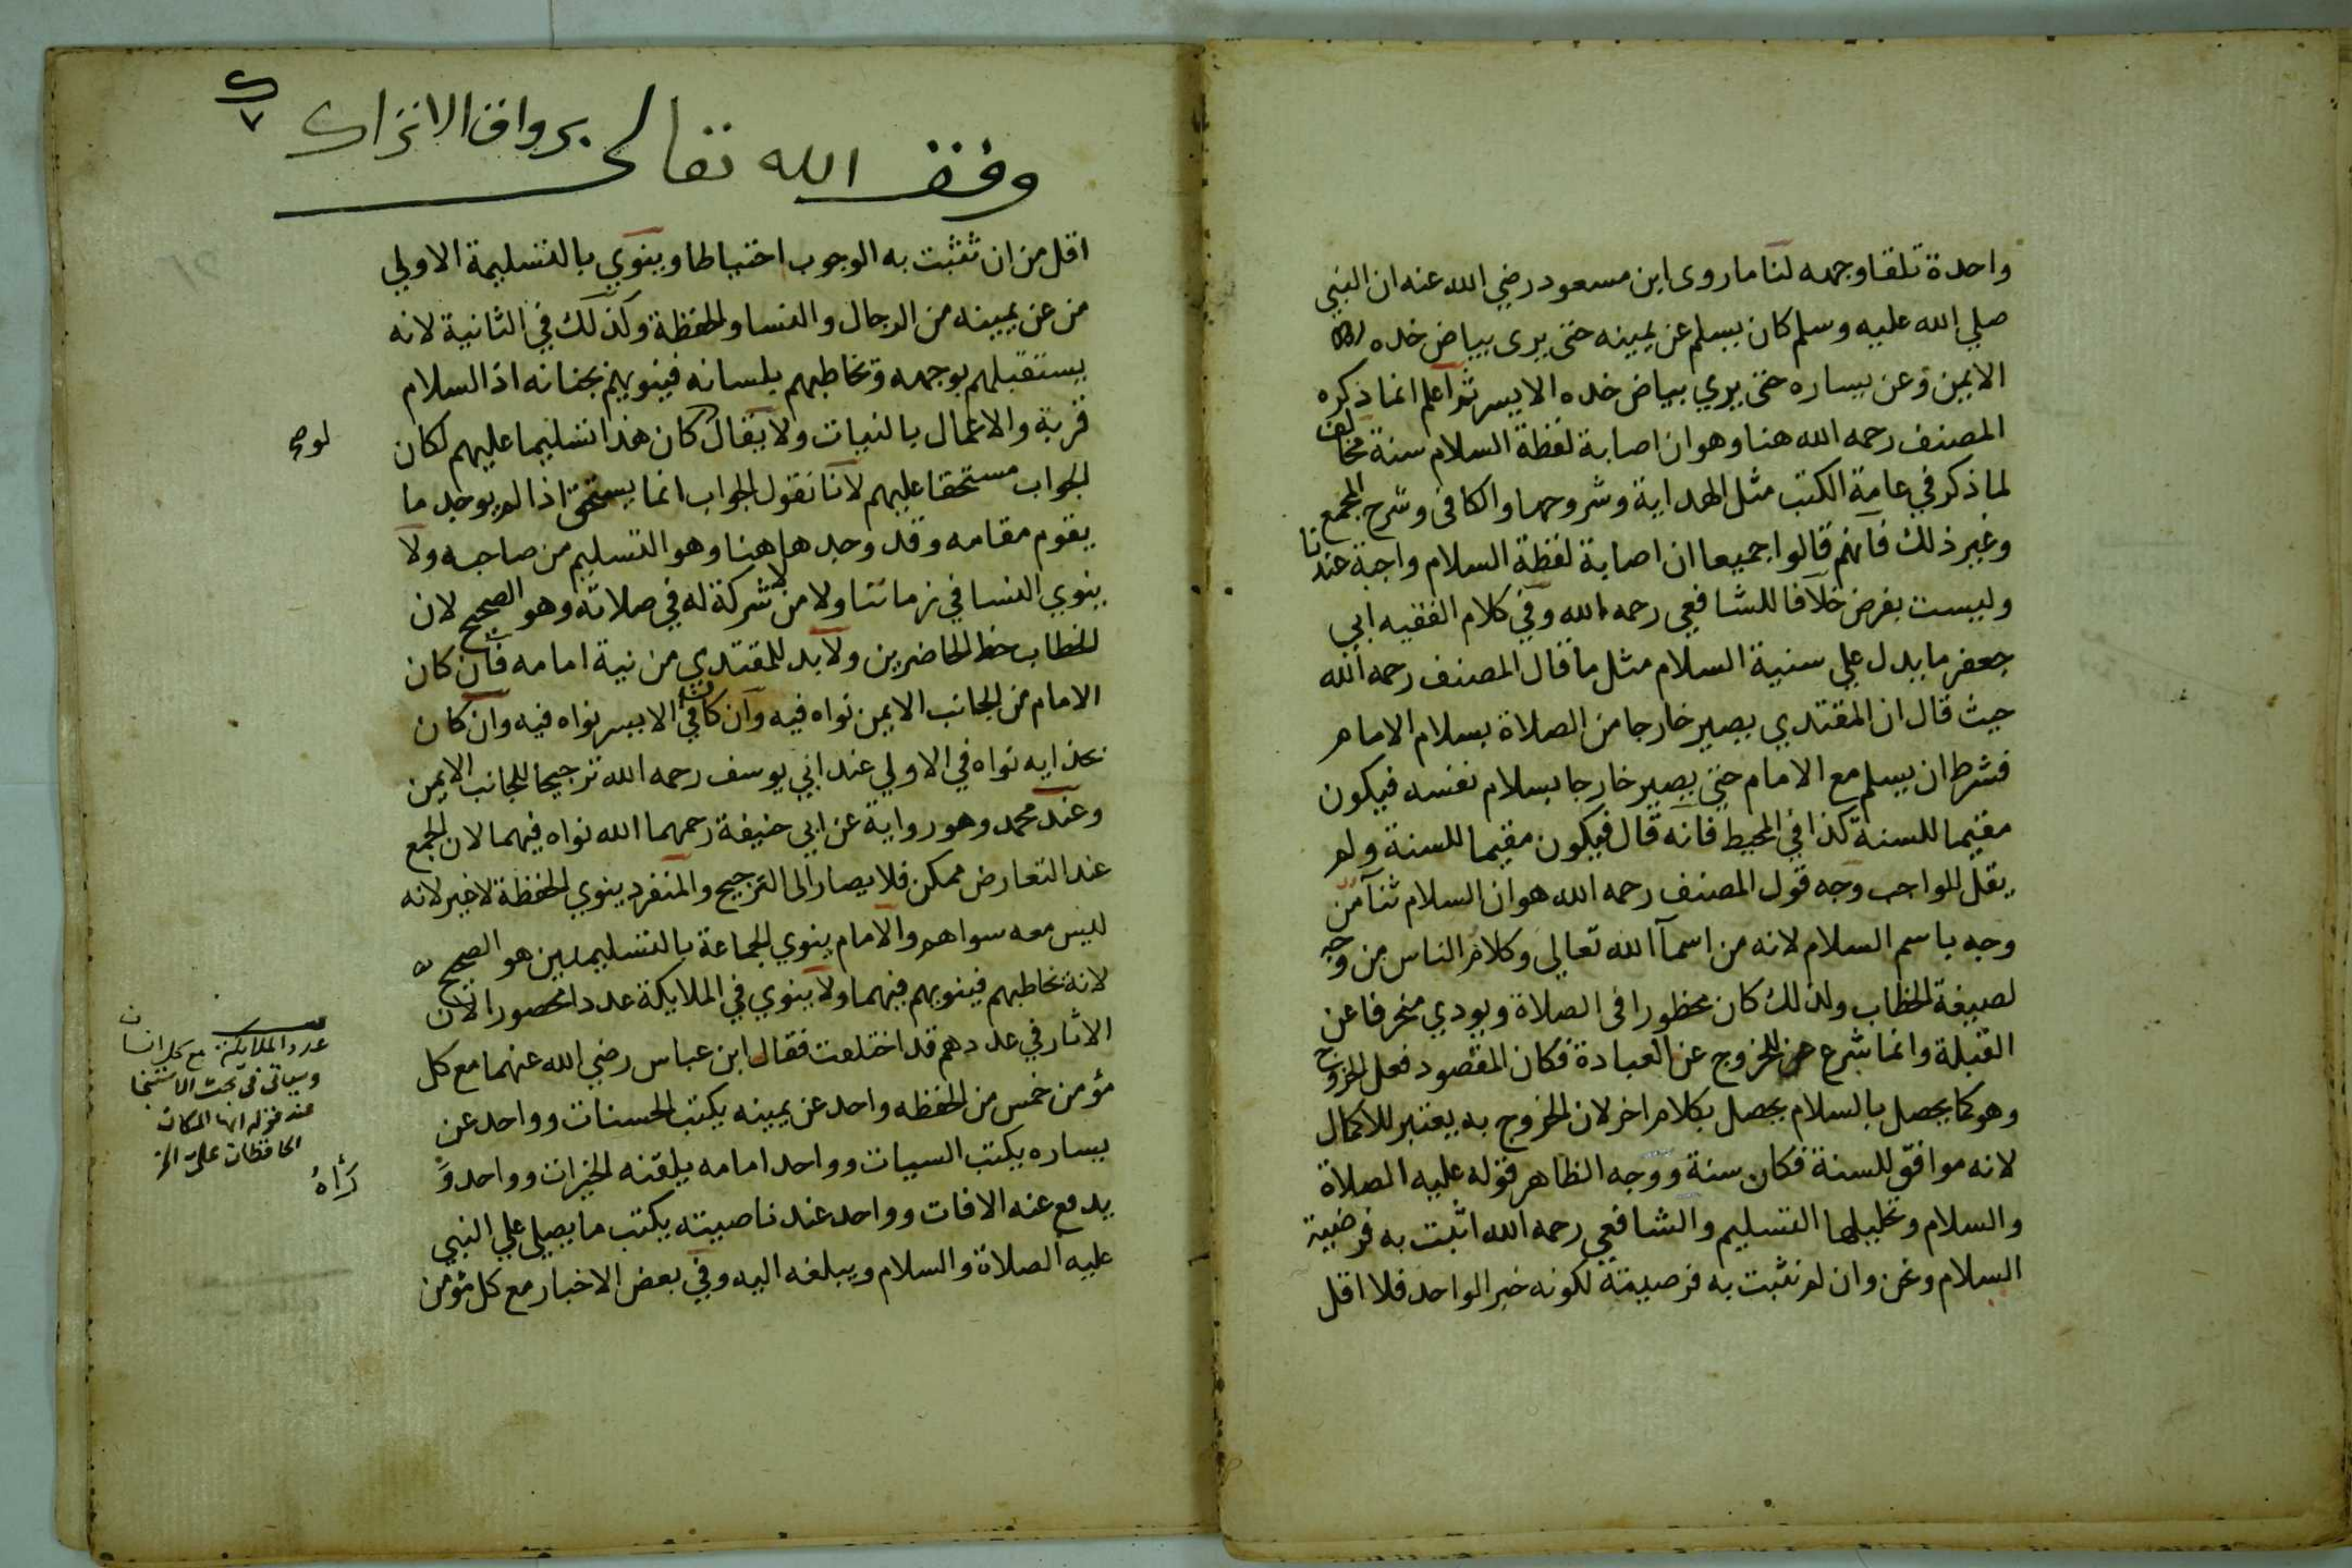 واحدة تلقا وجهه لنا ما روى ابن مسعود رضي الله عنه ان النبي
صلي الله عليه وسلم كان يسلم عن يمينه حتى يرى بياض خده
الايمن وعن يساره حتى يري بياض خده الايسر ثم اعلم انما ذكره
المصنف رحمه الله هنا وهو ان اصابة لفظة السلام سنة مخالف
لما ذكر في عامة الكتب مثل الهداية وشروحها والكافى وشرح المجمع
وغير ذلك فانهم قالوا جميعا ان اصابة لفظة السلام واجبة عندنا
وليست بفرض خلافا للشافعي رحمه الله وفي كلام الفقيه ابي
جعفر ما يدل علي سنية السلام مثل ما قال المصنف رحمه الله
حيث قال ان المقتدي يصير خارجا من الصلاة بسلام الامام
فشرط ان يسلم مع الامام حتى يصير خارجا بسلام نفسه فيكون
مقيما للسنة كذا في المحيط فانه قال فيكون مقيما للسنة ولم
يقل للواجب وجه قول المصنف رحمه الله هو ان السلام ثنآ من
وجه باسم السلام لانه من اسمآ الله تعالي وكلام الناس من وجه
لصيغة الخطاب ولذلك كان محظورا فى الصلاة ويودي منحرفا عن
القبلة وانما شرع للخروج عن العبادة فكان المقصود فعل الخروج
وهو كما يحصل بالسلام يحصل بكلام اخر لان الخروج به يعتبر للاكمال
لانه موافق للسنة فكان سنة ووجه الظاهر قوله عليه الصلاة
والسلام وتحليلها التسليم والشافعي رحمه الله اثبت به فرضية
السلام ونحن وان لم نثبت به فرضيته لكونه خبر الواحد فلا اقل
وقف الله تعالى برواق الاتراك
اقل من ان تثبت به الوجوب احتياطا وينوي بالتسليمة الاولي
من عن يمينه من الرجال والنسا والحفظة وكذلك في الثانية لانه
يستقبلهم بوجهه ويخاطبهم بلسانه فينويهم بجنانه اذ السلام
قربة والاعمال بالنيات ولا يقال كان هذا تسليما عليهم لكان
لو صح
الجواب مستحقا عليهم لانا نقول الجواب انما يستحق اذا لم يوجد ما
يقوم مقامه وقد وجد هاهنا وهو التسليم من صاحبه ولا
ينوي النسا في زماننا ولا من لا شركة له في صلاته وهو الصحيح لان
الخطاب حظ الحاضرين ولا بد للمقتدي من نية امامه فان كان
الامام من الجانب الايمن نواه فيه وان كان في الايسر نواه فيه وان كان
بحذايه نواه في الاولي عند ابي يوسف رحمه الله ترجيحا للجانب الايمن
وعند محمد وهو رواية عن ابي حنيفة رحمهما الله نواه فيهما لان الجمع
عند التعارض ممكن فلا يصار الى الترجيح والمنفرد ينوي الحفظة لا غير لانه
ليس معه سواهم والامام ينوي الجماعة بالتسليمتين هو الصحيح
لانه يخاطبهم فينويهم فيهما ولا ينوي في الملايكة عددا محصورا لان
الاثار في عددهم قد اختلفت فقال ابن عباس رضي الله عنهما مع كل
مؤمن خمس من الحفظه واحد عن يمينه يكتب الحسنات وواحد عن
يساره يكتب السيات وواحد امامه يلقنه الخيرات وواحد
يدفع عنه الافات وواحد عند ناصيته يكتب ما يصلي علي النبي
عليه الصلاة والسلام ويبلغه اليه وفي بعض الاخبار مع كل مؤمن
عدد الملايكة مع كل انسان
وسياتى فى بحث الاستنجا
عند قوله
الحافظان على الخ